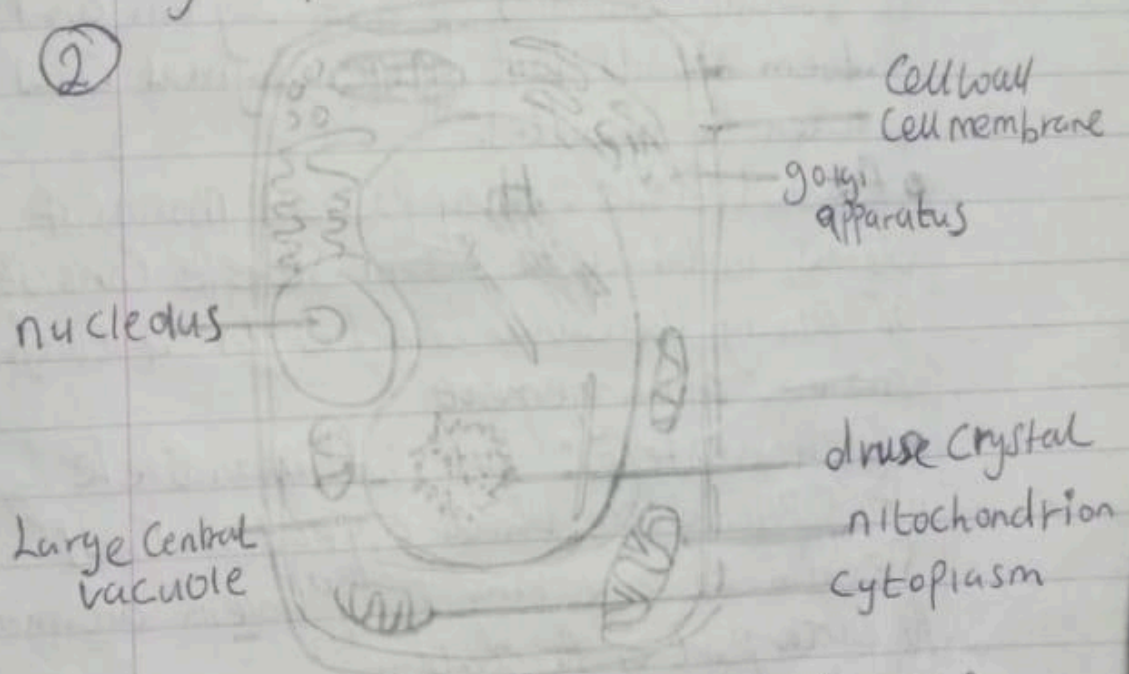 2
Cell wall
Cell membrane
golgi
apparatus
nucleolus
druse Crystal
nitochondrion
Large Central
vacuole
cytoplasm